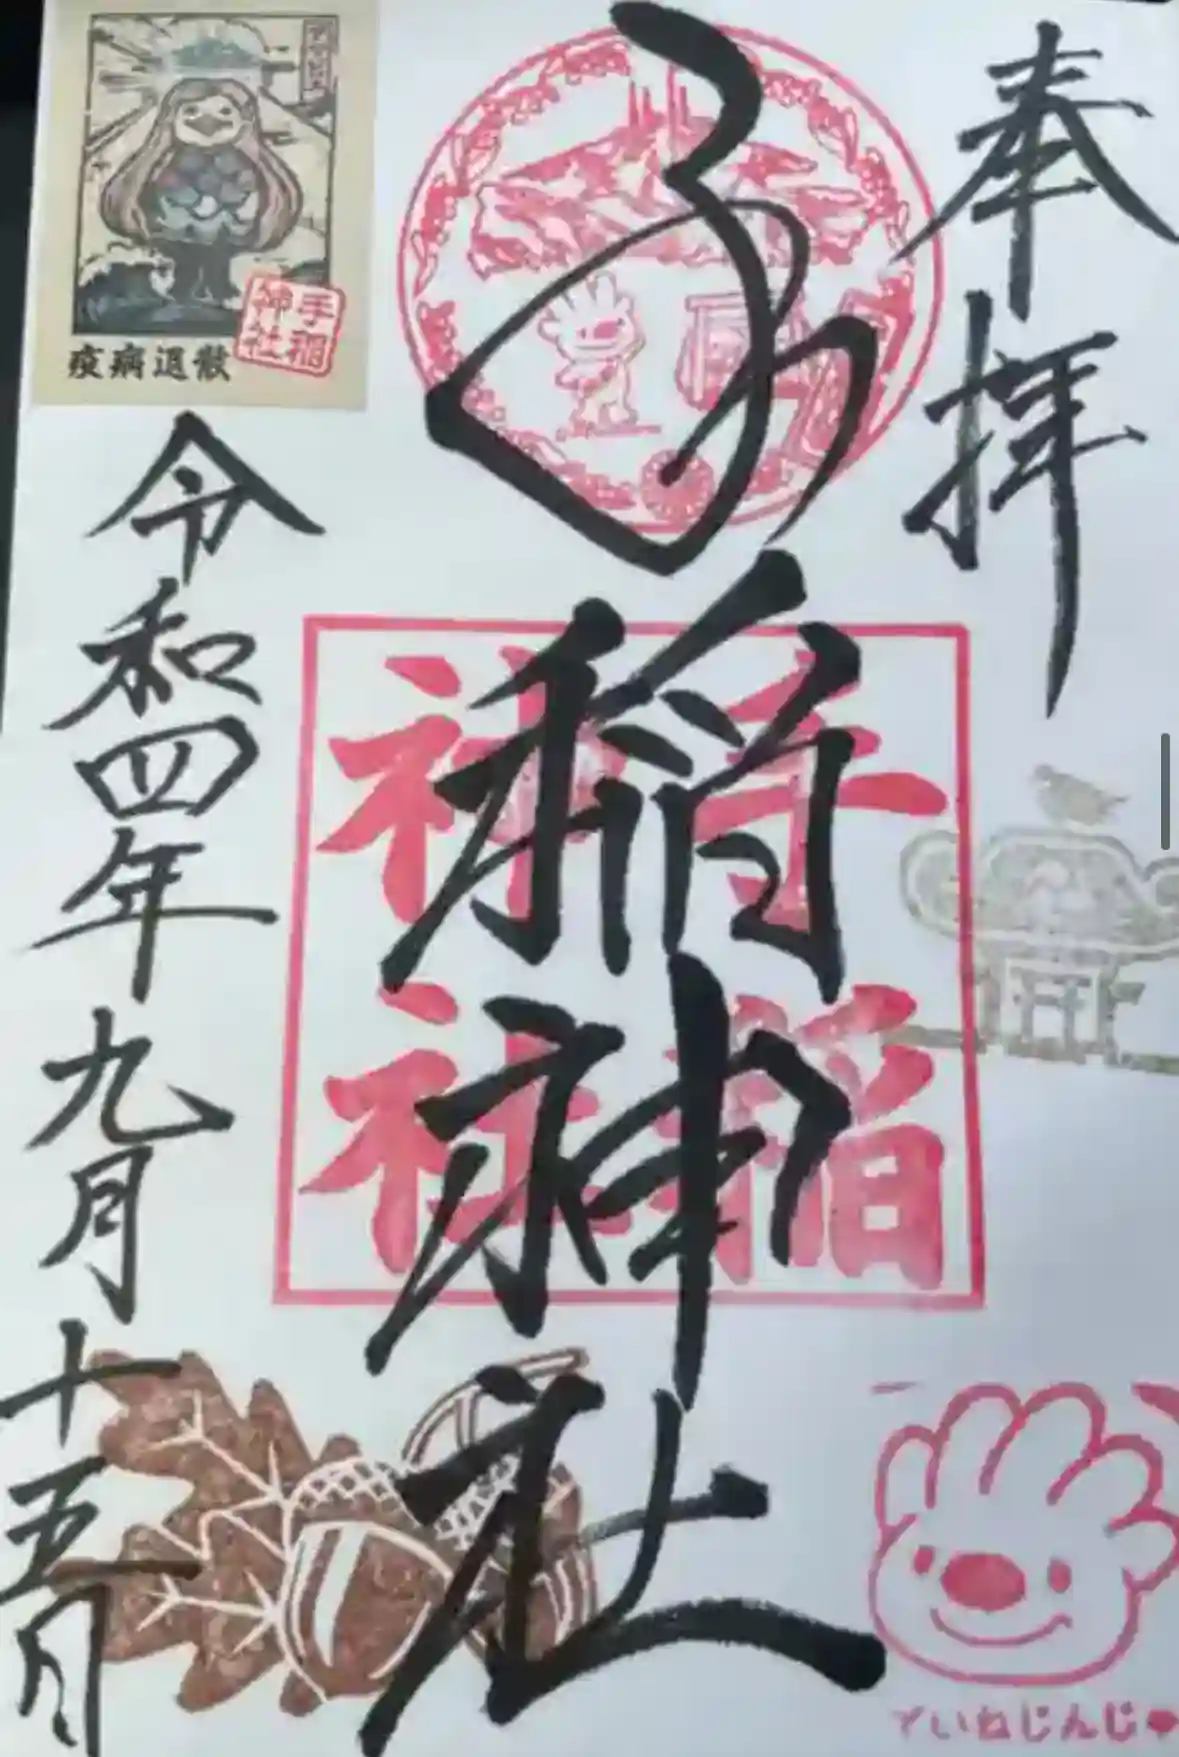 奉拝
手稲神社
手稲
神社
令和四年九月十五日
手稲
神社
疫病退散
ていねじんじ